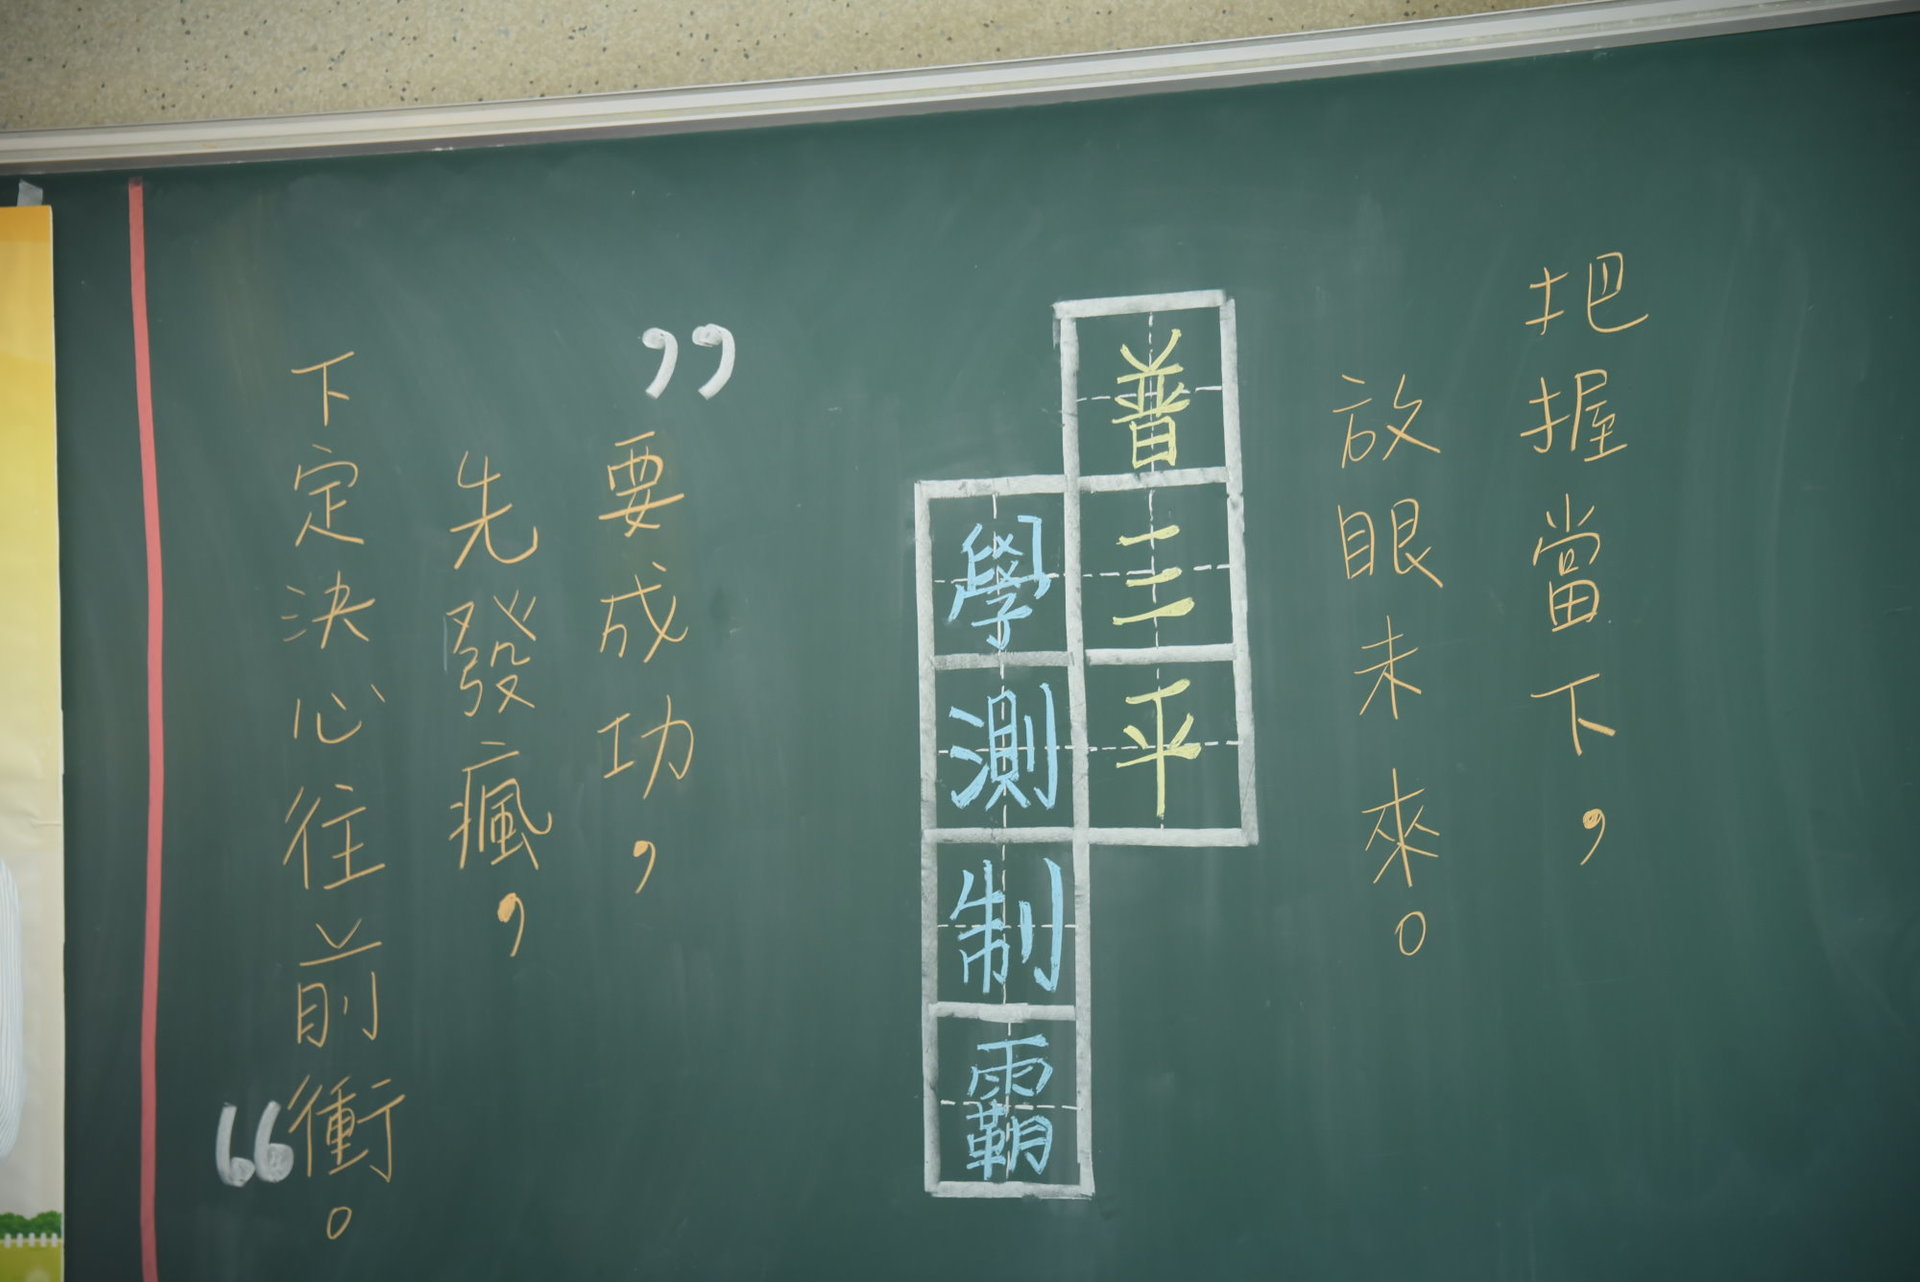 把握當下，
放眼未來。
普三平
學測制霸
”要成功，
先發瘋，
下定決心往前衝。“